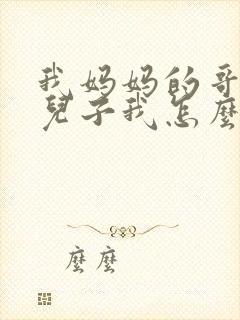 我妈妈的哥
兒子我怎麼
麼麼